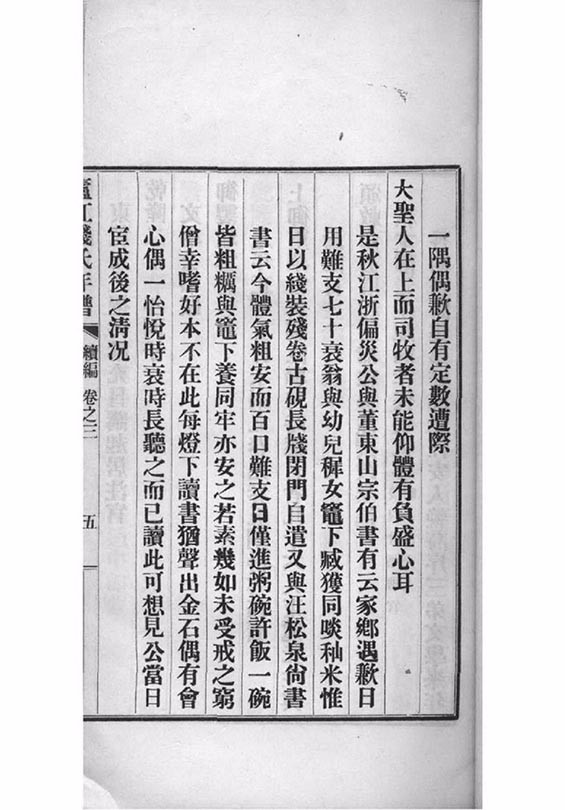 一隅偶歉自有定數遭際
大聖人在上而司牧者未能仰體有負盛心耳
是秋江浙偏災公與董東山宗伯書有云家鄉遇歉日
用難支七十衰翁與幼兒穉女竈下臧獲同啖秈米惟
日以綫裝殘卷古硯長牋閉門自遣又與汪松泉尙書
書云今體氣粗安而百口難支日僅進粥碗許飯一碗
皆粗糲與竈下養同牢亦安之若素幾如未受戒之窮
僧幸嗜好本不在此每燈下讀書猶聲出金石偶有會
心偶一怡悅時衰時長聽之而已讀此可想見公當日
宦成後之淸况
廬江錢氏年譜 續編 卷之三 五